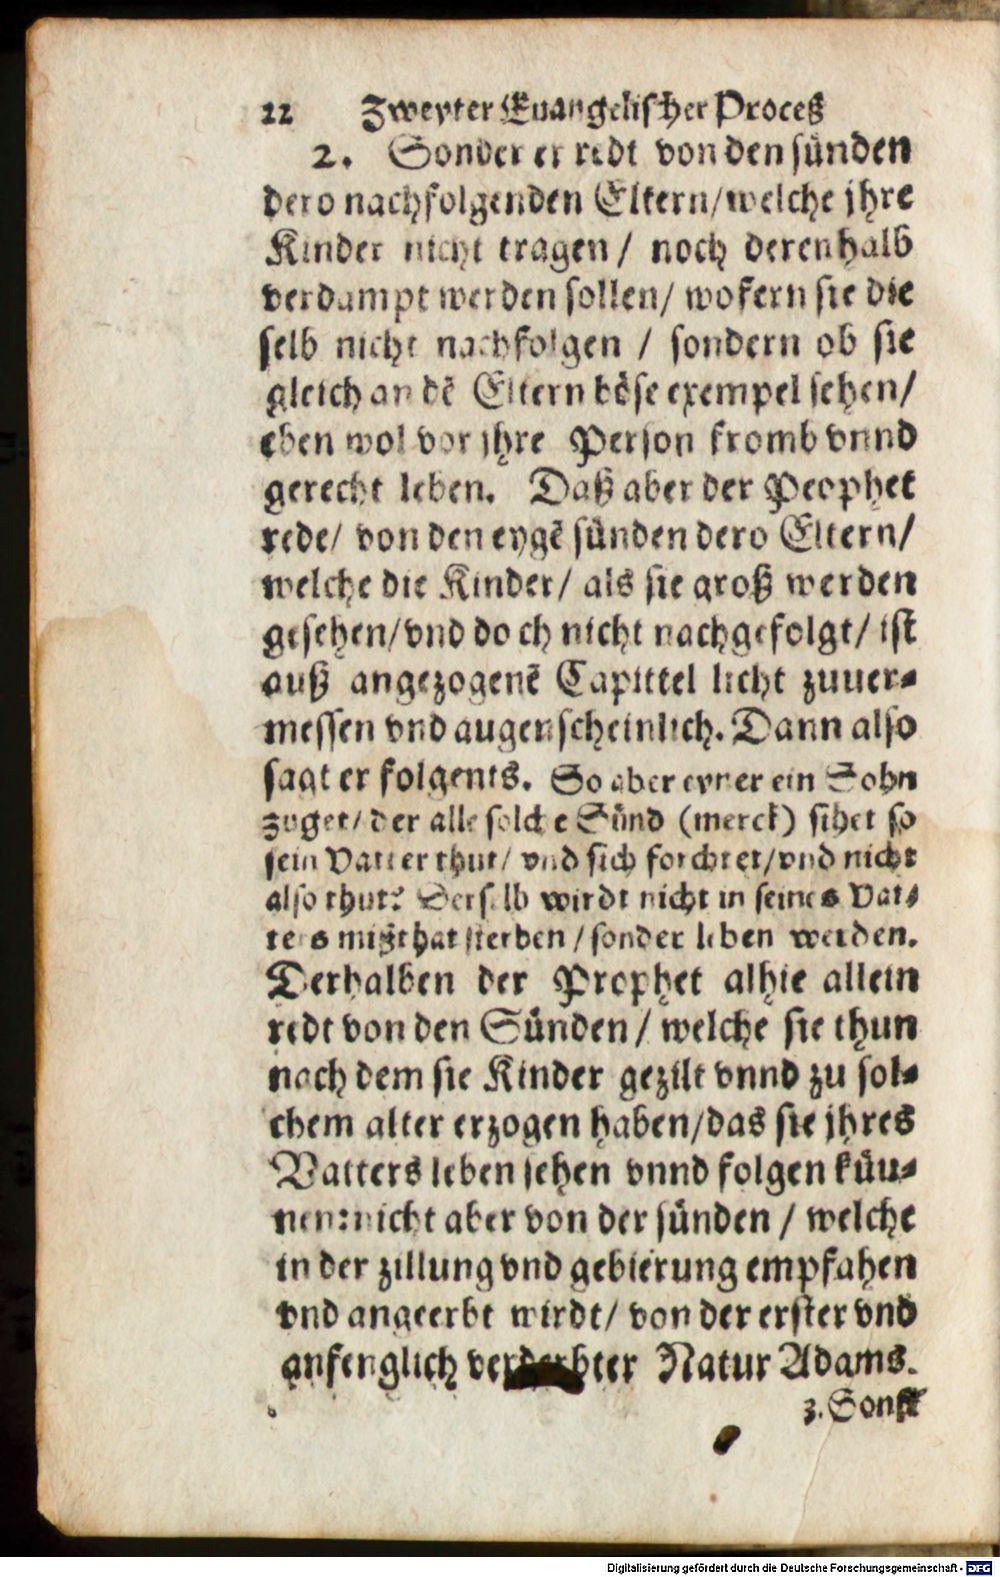 22 Zweyter Euangelischer Proceß
2. Sonder er redt von den sünden
dero nachfolgenden Eltern/welche jhre
Kinder nicht tragen / noch derenhalb
verdampt werden sollen/ wofern sie die
selb nicht nachfolgen / sondern ob sie
gleich an dē Eltern böse exempel sehen/
eben wol vor jhre Person fromb vnnd
gerecht leben. Daß aber der Peophet
rede/ von den eygē sünden dero Eltern/
welche die Kinder/ als sie groß werden
gesehen/vnd doch nicht nachgefolgt/ ist
auß angezogenē Capittel licht zuuer-
messen vnd augenscheinlich. Dann also
sagt er folgents. So aber eyner ein Sohn
zuget/ der alle solche Sünd (merck) sihet so
sein Vatter thut/ vnd sich forchtet/vnd nicht
also thut? Derselb wirdt nicht in seines Vat-
ters mißthat sterben / sonder leben werden.
Derhalben der Prophet alhie allein
redt von den Sünden / welche sie thun
nach dem sie Kinder gezilt vnnd zu sol-
chem alter erzogen haben/das sie jhres
Vatters leben sehen vnnd folgen küu-
nen:nicht aber von der sünden / welche
in der zillung vnd gebierung empfahen
vnd angeerbt wirdt/ von der erster vnd
anfenglich verderbter Natur Adams.
3. Sonst
Digitalisierung gefördert durch die Deutsche Forschungsgemeinschaft - DFG